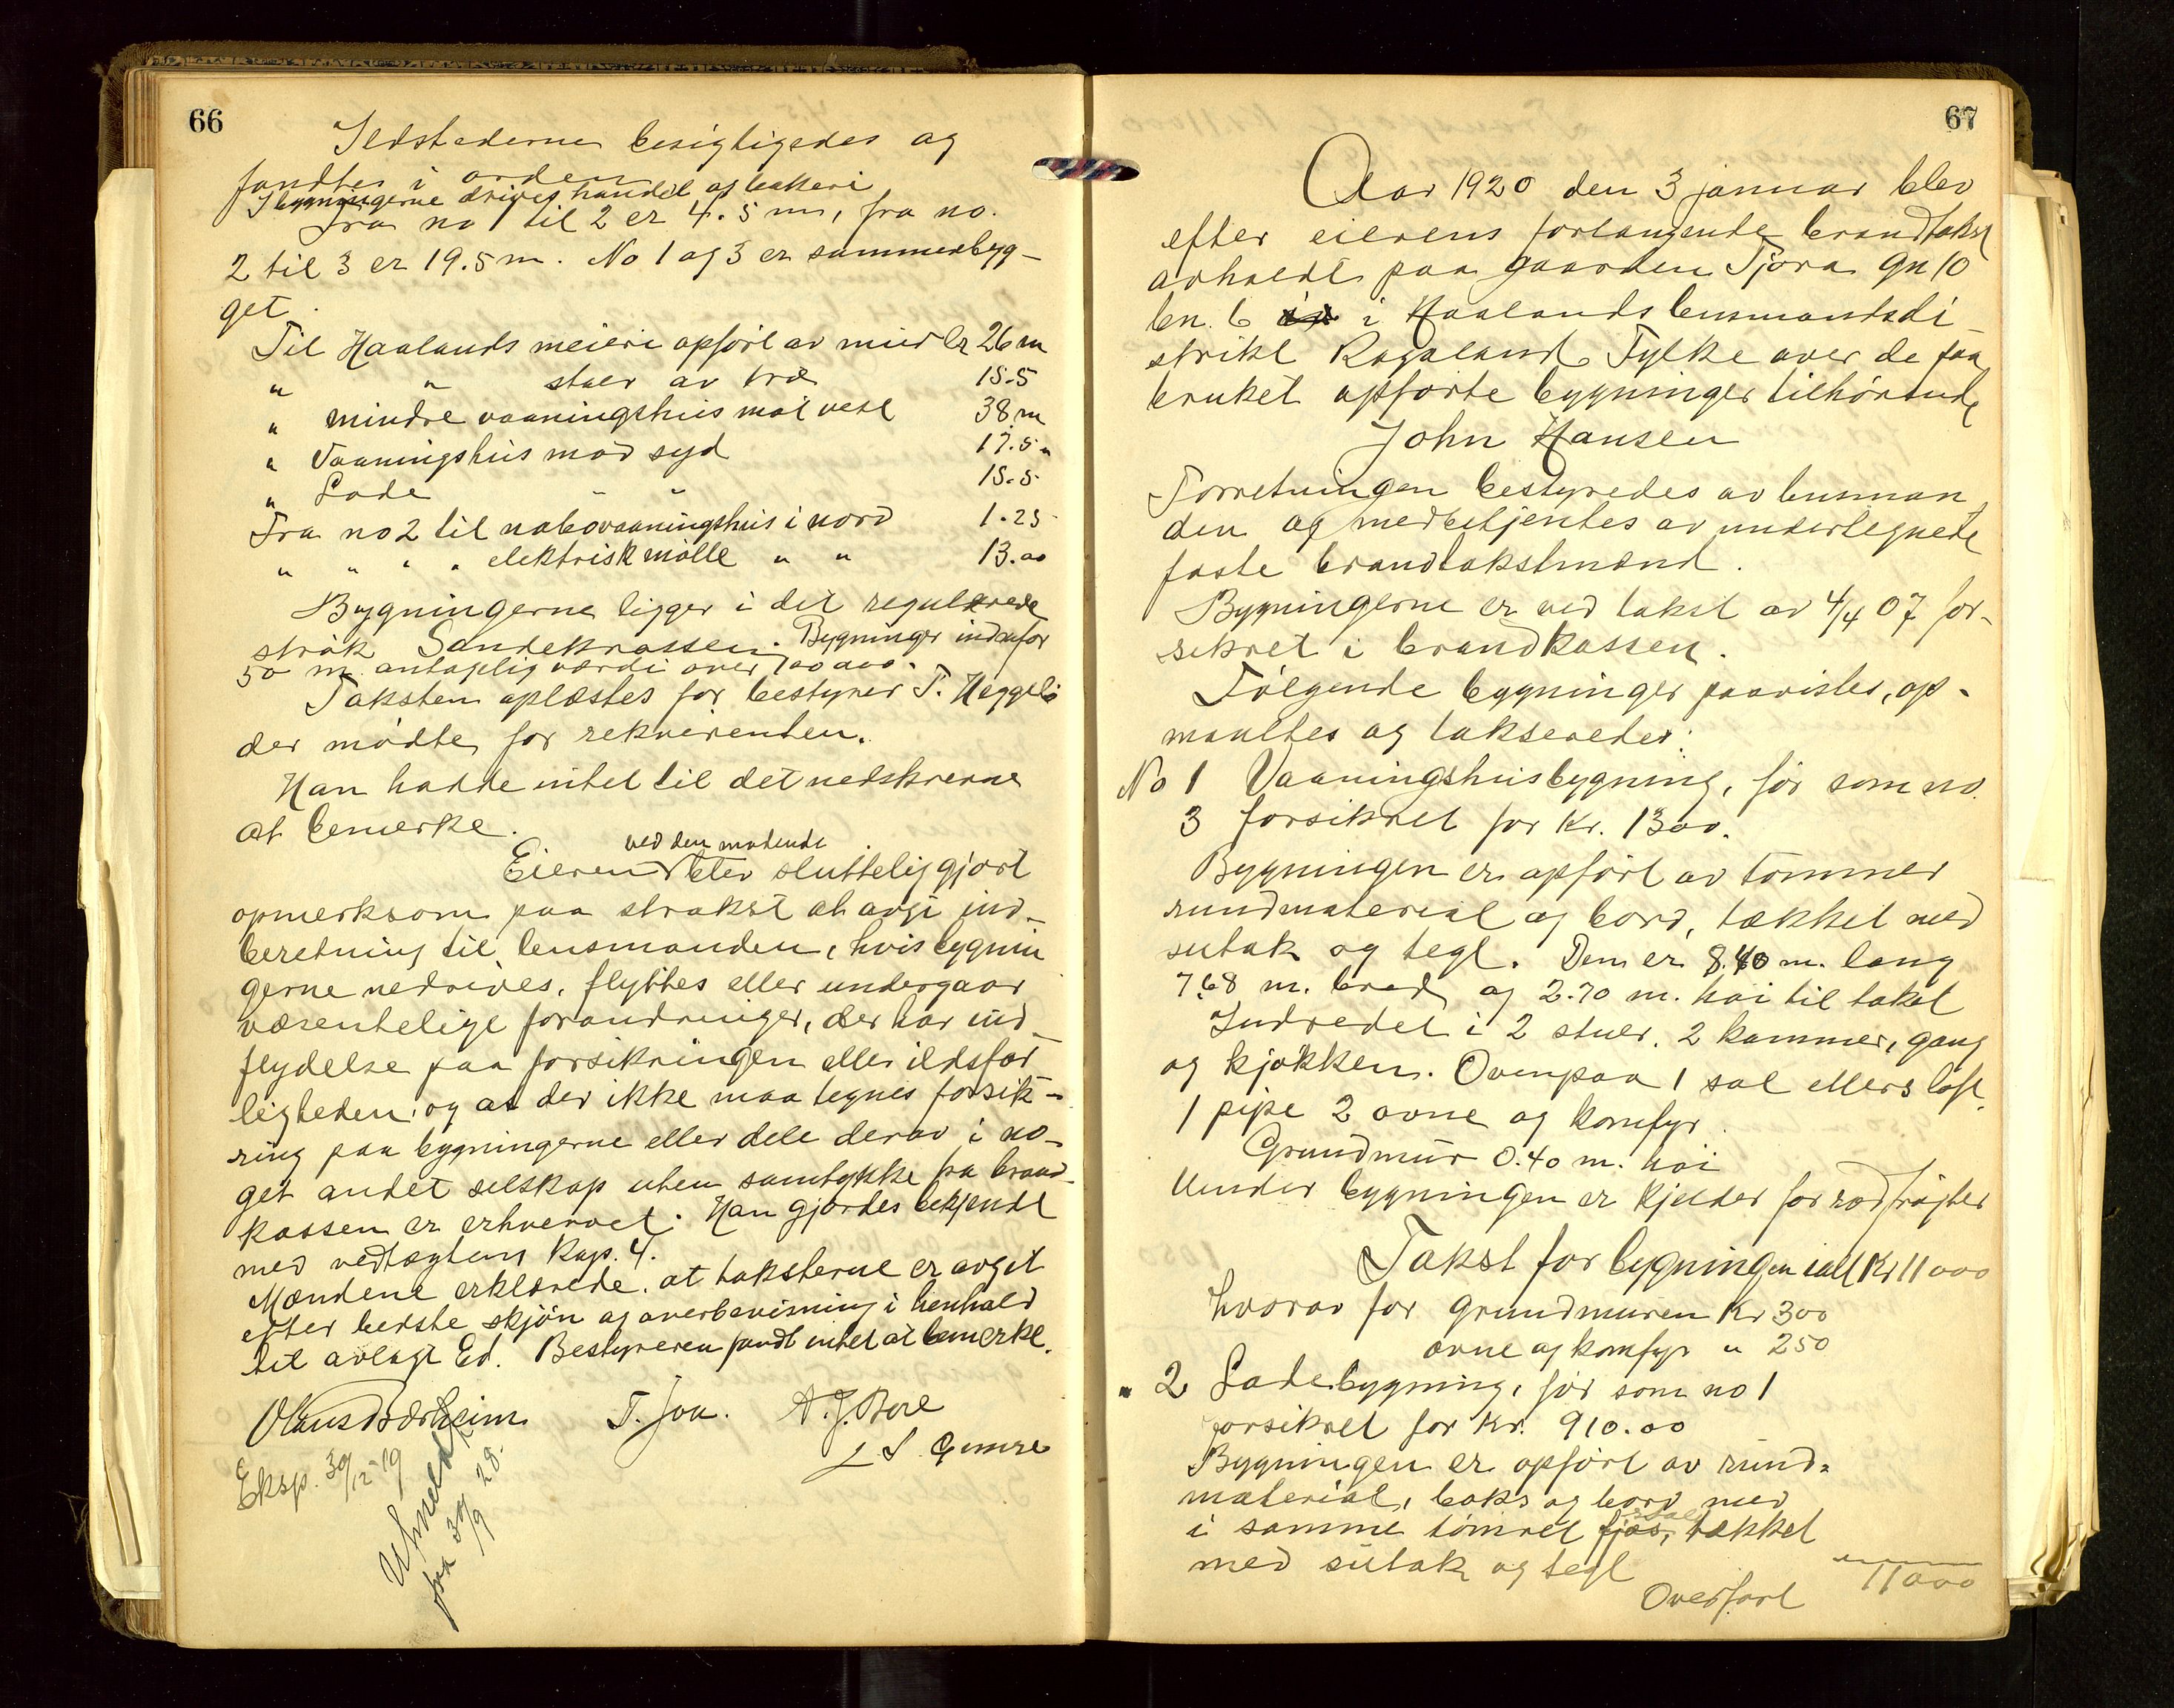 66
Ildstederne besigtigedes og
fandtes i orden
I bygningerne drives handel og bakeri
Fra no 1 til 2 er 4.5 m, fra no.
2 til 3 er 19.5 m. No 1 og 3 er sammenbyg-
get.
Til Haalands meieri opført av mur er 26 m
" " stuer av træ 15.5
" mindre vaaningshus mot vest 38 m
" Vaaningshus mod syd 17.5 "
" Lade " " 15.5
Fra no 2 til nabovaaningshus i nord 1.25
" " " " elektrisk mølle " " 13.00
Bygningerne ligger i det regulerede
strøk Sandekrossen. Bygninger indenfor
50 m. antaglig værdi over 100 000.
Taksten oplæstes for bestyrer T. Heggelö
der mødte for rekvirenten.
Han hadde intet til det nedskrevne
at bemerke.
ved den møtende
Eieren blev sluttelig gjort
opmerksom paa strakst at avgi ind-
beretning til lensmanden, hvis bygnin
gerne nedrives, flyttes eller undergaar
væsentelige forandringer, der har ind-
flydelse paa forsikringen eller ildsfar-
ligheden, og at der ikke maa tegnes forsik-
ring paa bygningerne eller dele derav i no-
get andet selskap uten samtykke fra brand-
kassen er erhvervet. Han gjordes bekjendt
med vedtægtens kap. 4.
Mændene erklærede, at taksterne er avgit
efter bedste skjön og overbevisning i henhald
til avlagt Ed. Bestyreren fandt intet at bemerke.
T. Joa. A. J. Bore
L S Gimre
Eksp. 30/12-19
Utmeldt
fra 30/9 28.
67
Aar 1920 den 3 januar blev
efter eierens forlangende brandtakst
avholdt paa gaarden Tjora gn 10
bn. 6 i Haalands lensmandsdi-
strikt Rogaland Fylke over de paa
bruket opførte bygninger tilhörende
John Hansen
Forretningen bestyredes av lensman
den og medbetjentes av undertegnede
faste brandtakstmænd.
Bygningerne er ved takst av 4/4 07 for-
sikret i brandkassen.
Følgende bygninger paavistes, op-
maaltes og takseredes:
No 1 Vaaningshusbygning, för som no.
3 forsikret for Kr. 1300.
Bygningen er opført av tömmer
rundmaterial og bord, tækket med
sutak og tegl. Den er 8.40 m. lang
7.68 m. bred og 2.70 m. høi til taket
Indredet i 2 stuer, 2 kammer, gang
og kjøkken. Ovenpaa 1 sal ellers loft.
1 pipe 2 ovne og komfyr.
Grundmur 0.40 m. høi
Under bygningen er kjelder for rodfrugter
Takst for bygningen ialt Kr 11 000
hvorav for grundmuren Kr 300
ovne og komfyr " 250
" 2 Ladebygning, för som no 1
forsikret for Kr. 910.00
Bygningen er opfört av rund-
material, baks og bord med
i samme tömret fjøs, tækket
med sutak og tegl
Overfört 11 000